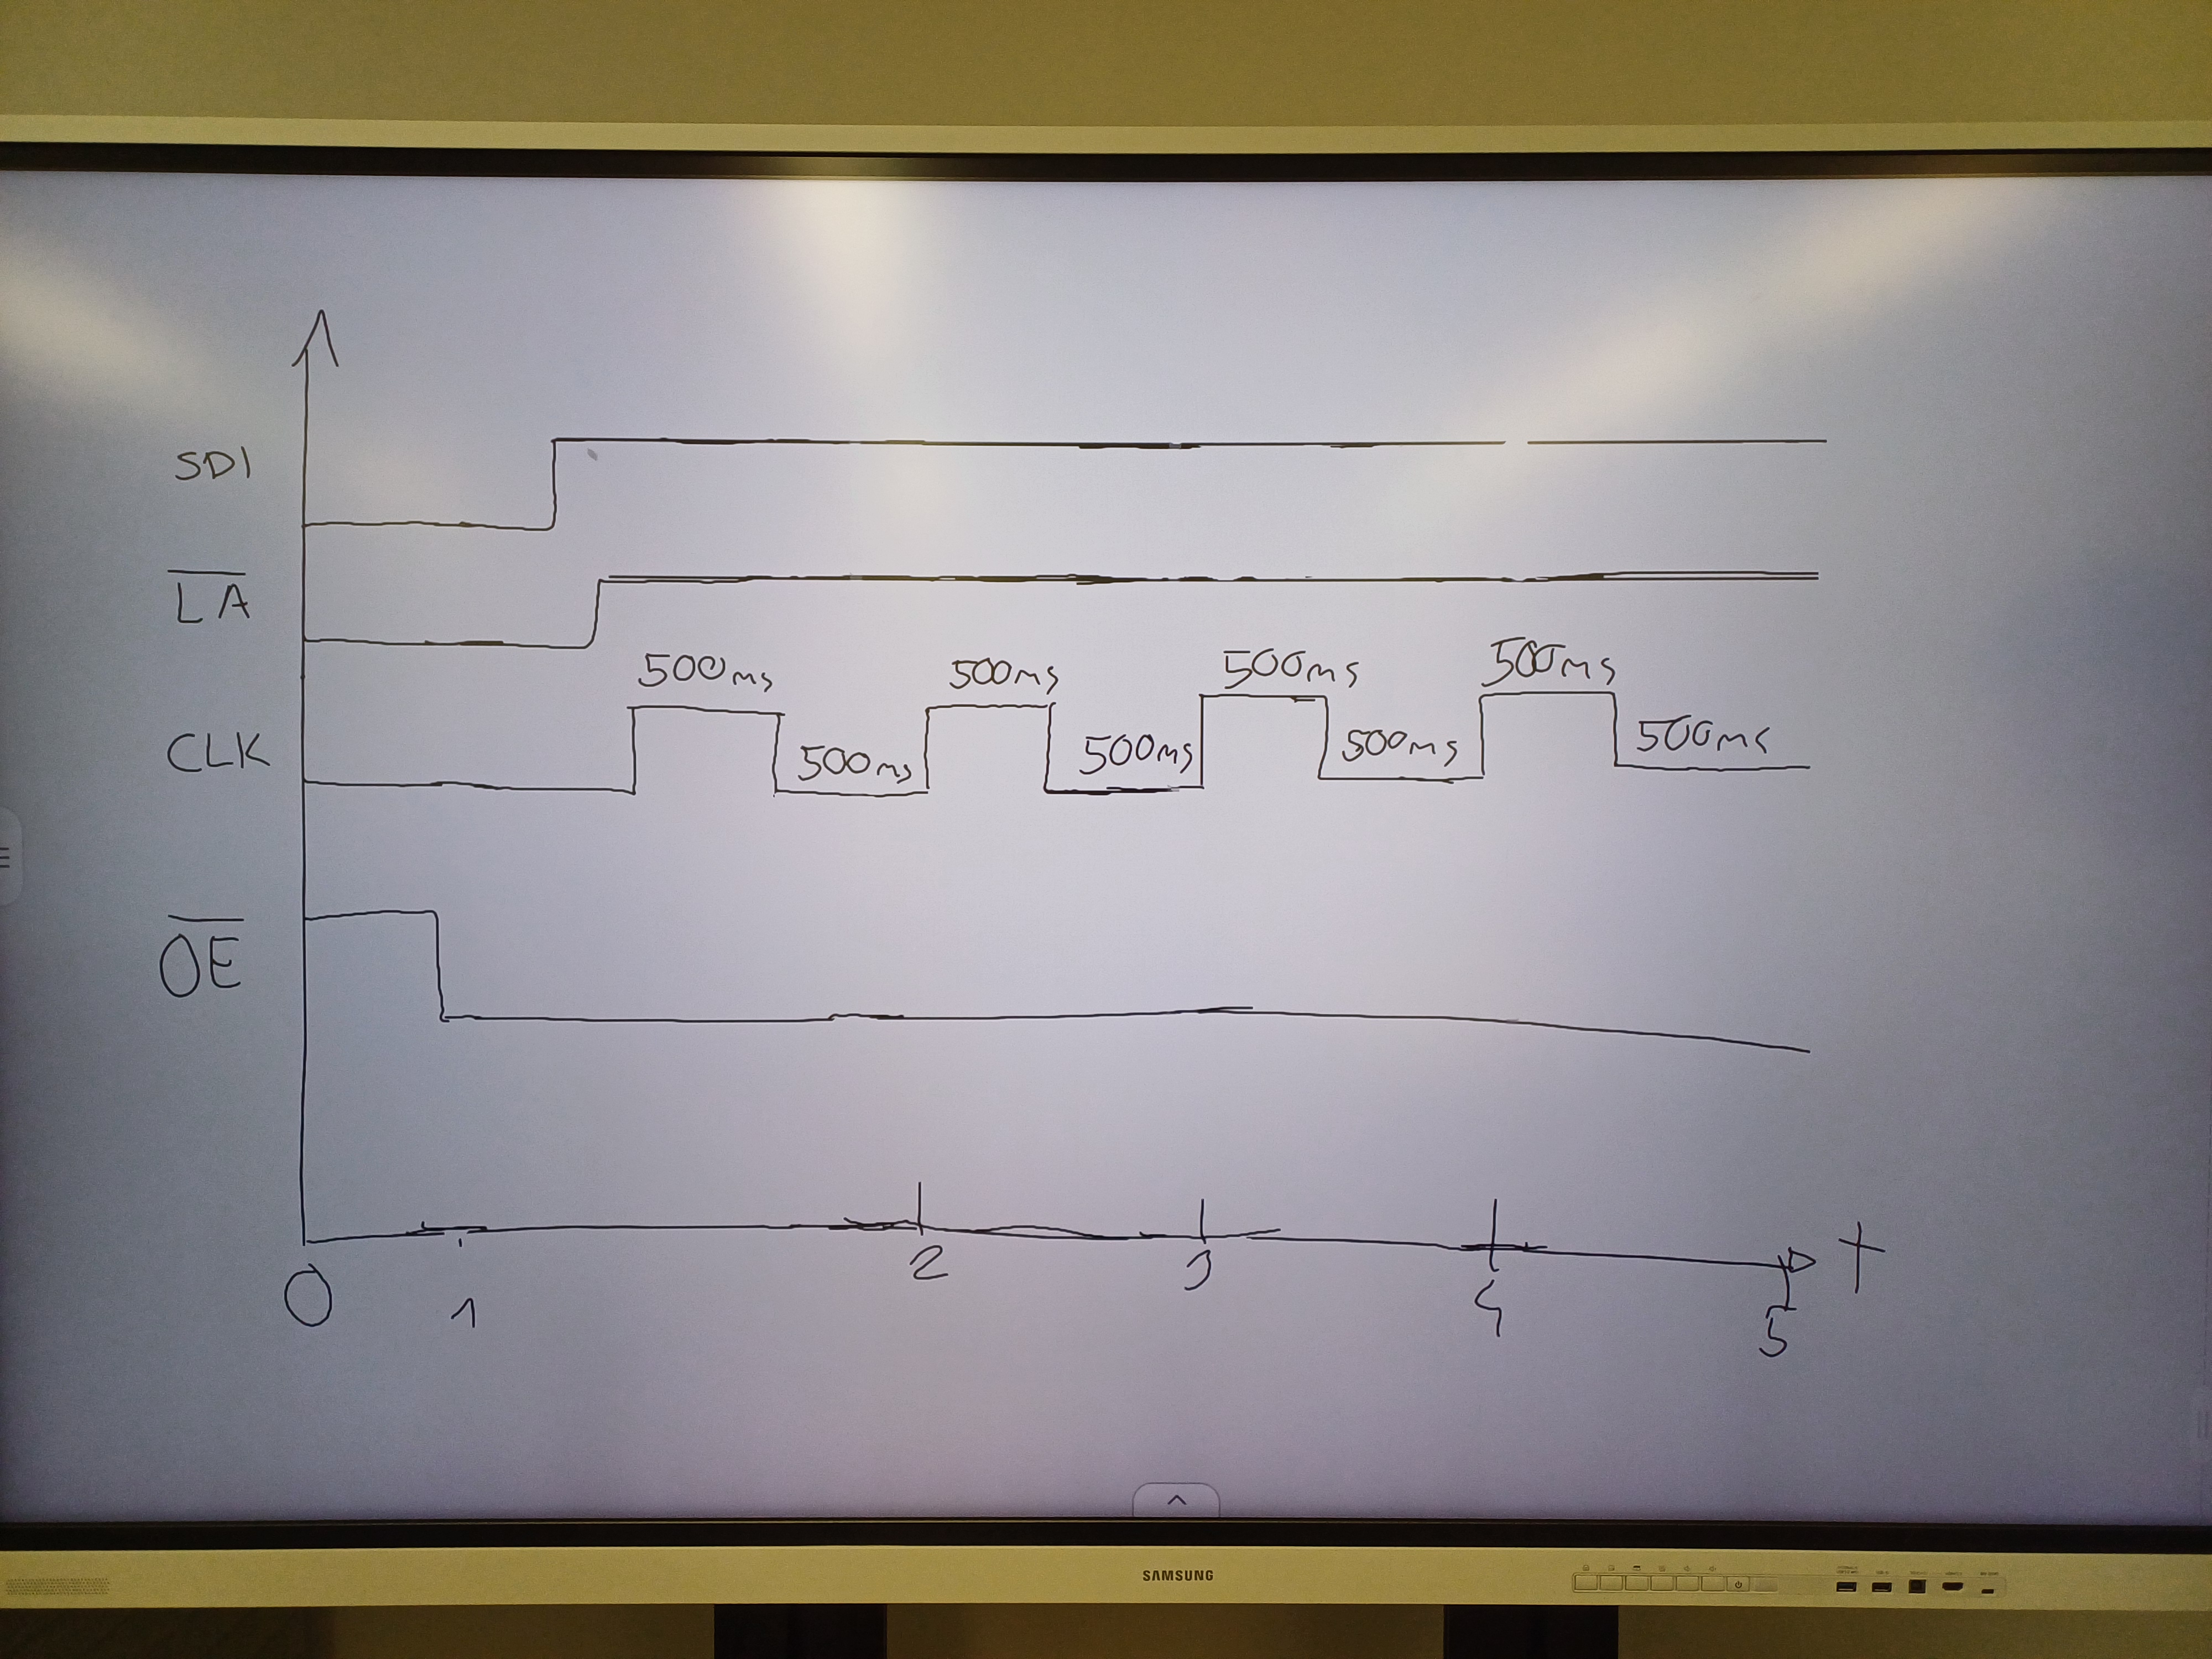 SDI
LA
500ms 500ms 500ms 500ms
CLK 500ms 500ms 500ms 500ms
OE
0 1 2 3 4 5 t
SAMSUNG